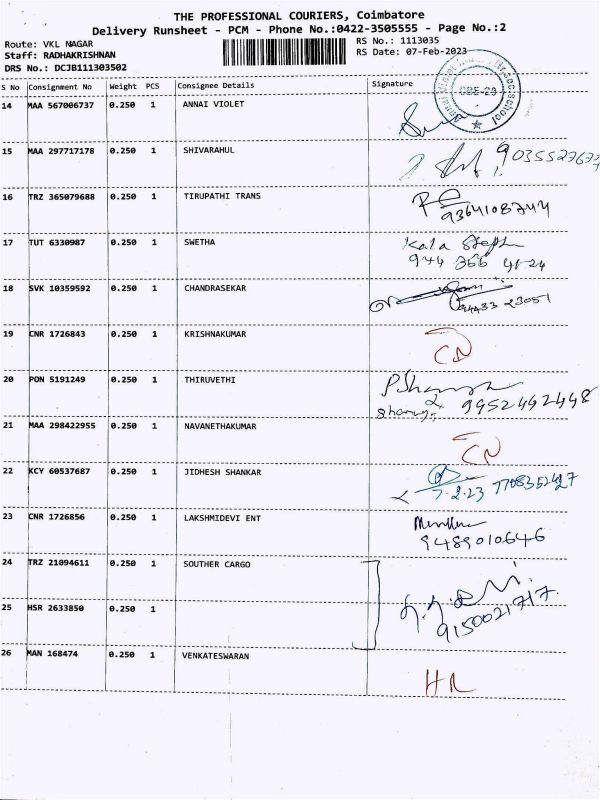 THE PROFESSIONAL COURIERS, Coimbatore
Delivery Runsheet - PCM - Phone No.:0422-3505555 - Page No.:2
Route: VKL NAGAR
RS No.: 1113035
Staff: RADHAKRISHNAN
RS Date: 07-Feb-2023
DRS No.: DCJB111303502
S No Consignment No Weight PCS Consignee Details Signature
CBE-29
14 MAA 567006737 0.250 1 ANNAI VIOLET
15 MAA 297717178 0.250 1 SHIVARAHUL
16 TRZ 365079688 0.250 1 TIRUPATHI TRANS
9364108744
17 TUT 6330987 0.250 1 SWETHA Kala Steph
944 366 41-24
18 SVK 10359592 0.250 1 CHANDRASEKAR
94433 23051
19 CNR 1726843 0.250 1 KRISHNAKUMAR CN
20 PON 5191249 0.250 1 THIRUVETHI
9952492448
21 MAA 298422955 0.250 1 NAVANETHAKUMAR CN
22 KCY 60537687 0.250 1 JIDHESH SHANKAR
7.2.23 7708352427
23 CNR 1726856 0.250 1 LAKSHMIDEVI ENT
9489010646
24 TRZ 21094611 0.250 1 SOUTHER CARGO
25 HSR 2633850 0.250 1
9150021717
26 MAN 168474 0.250 1 VENKATESWARAN